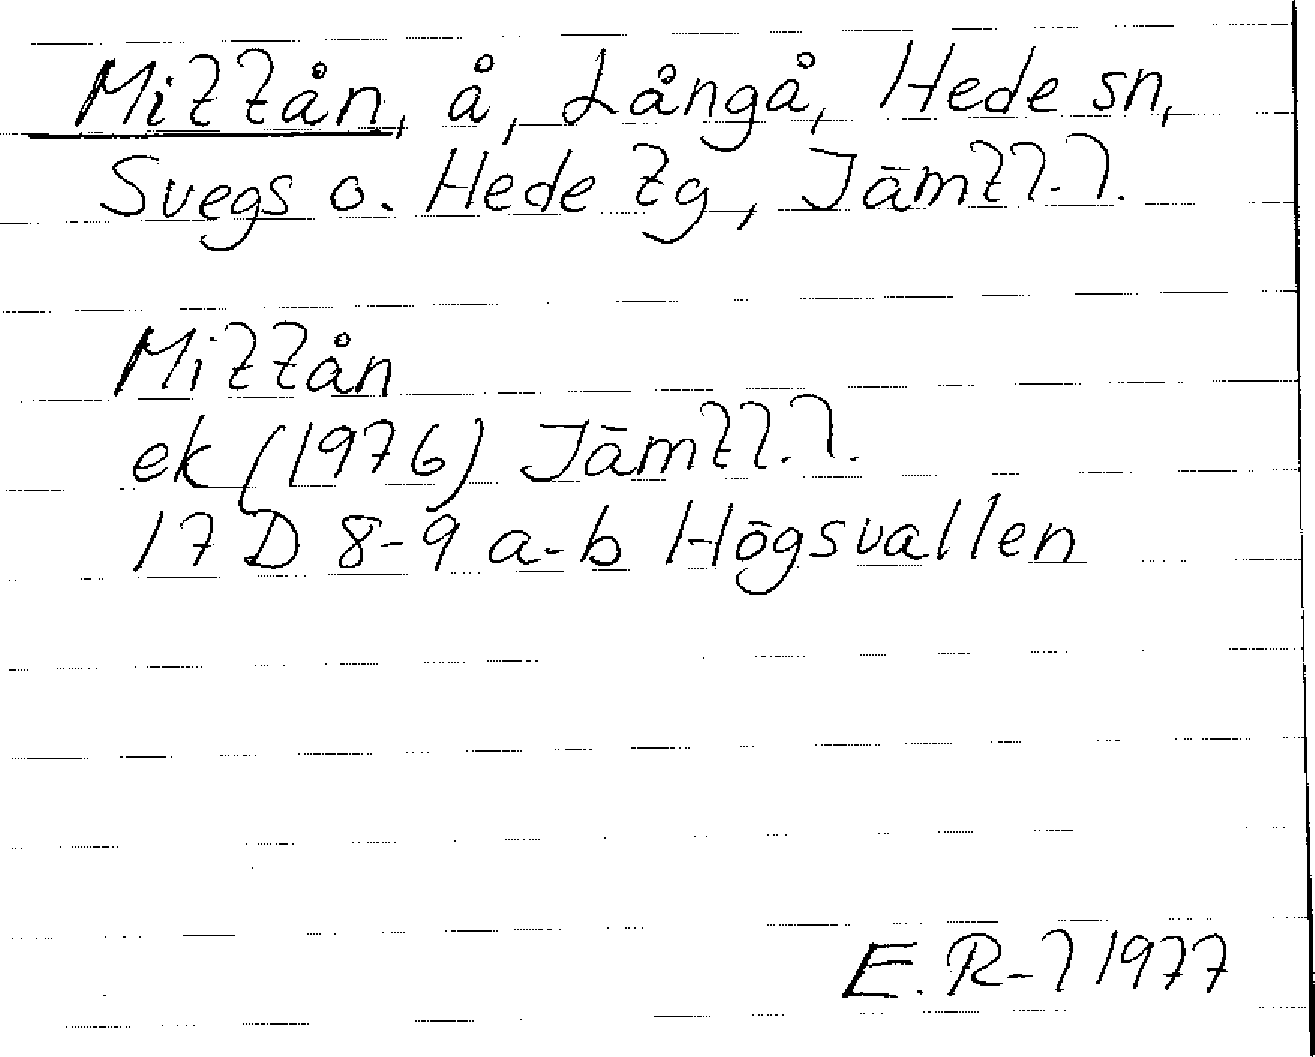 Mittån, å, Långå, Hede sn,
Svegs o. Hede tg, Jämtl.l.
Mittån
ek (1976) Jämtl.l.
17 D 8-9 a-b Högsvallen
E. R-l 1977